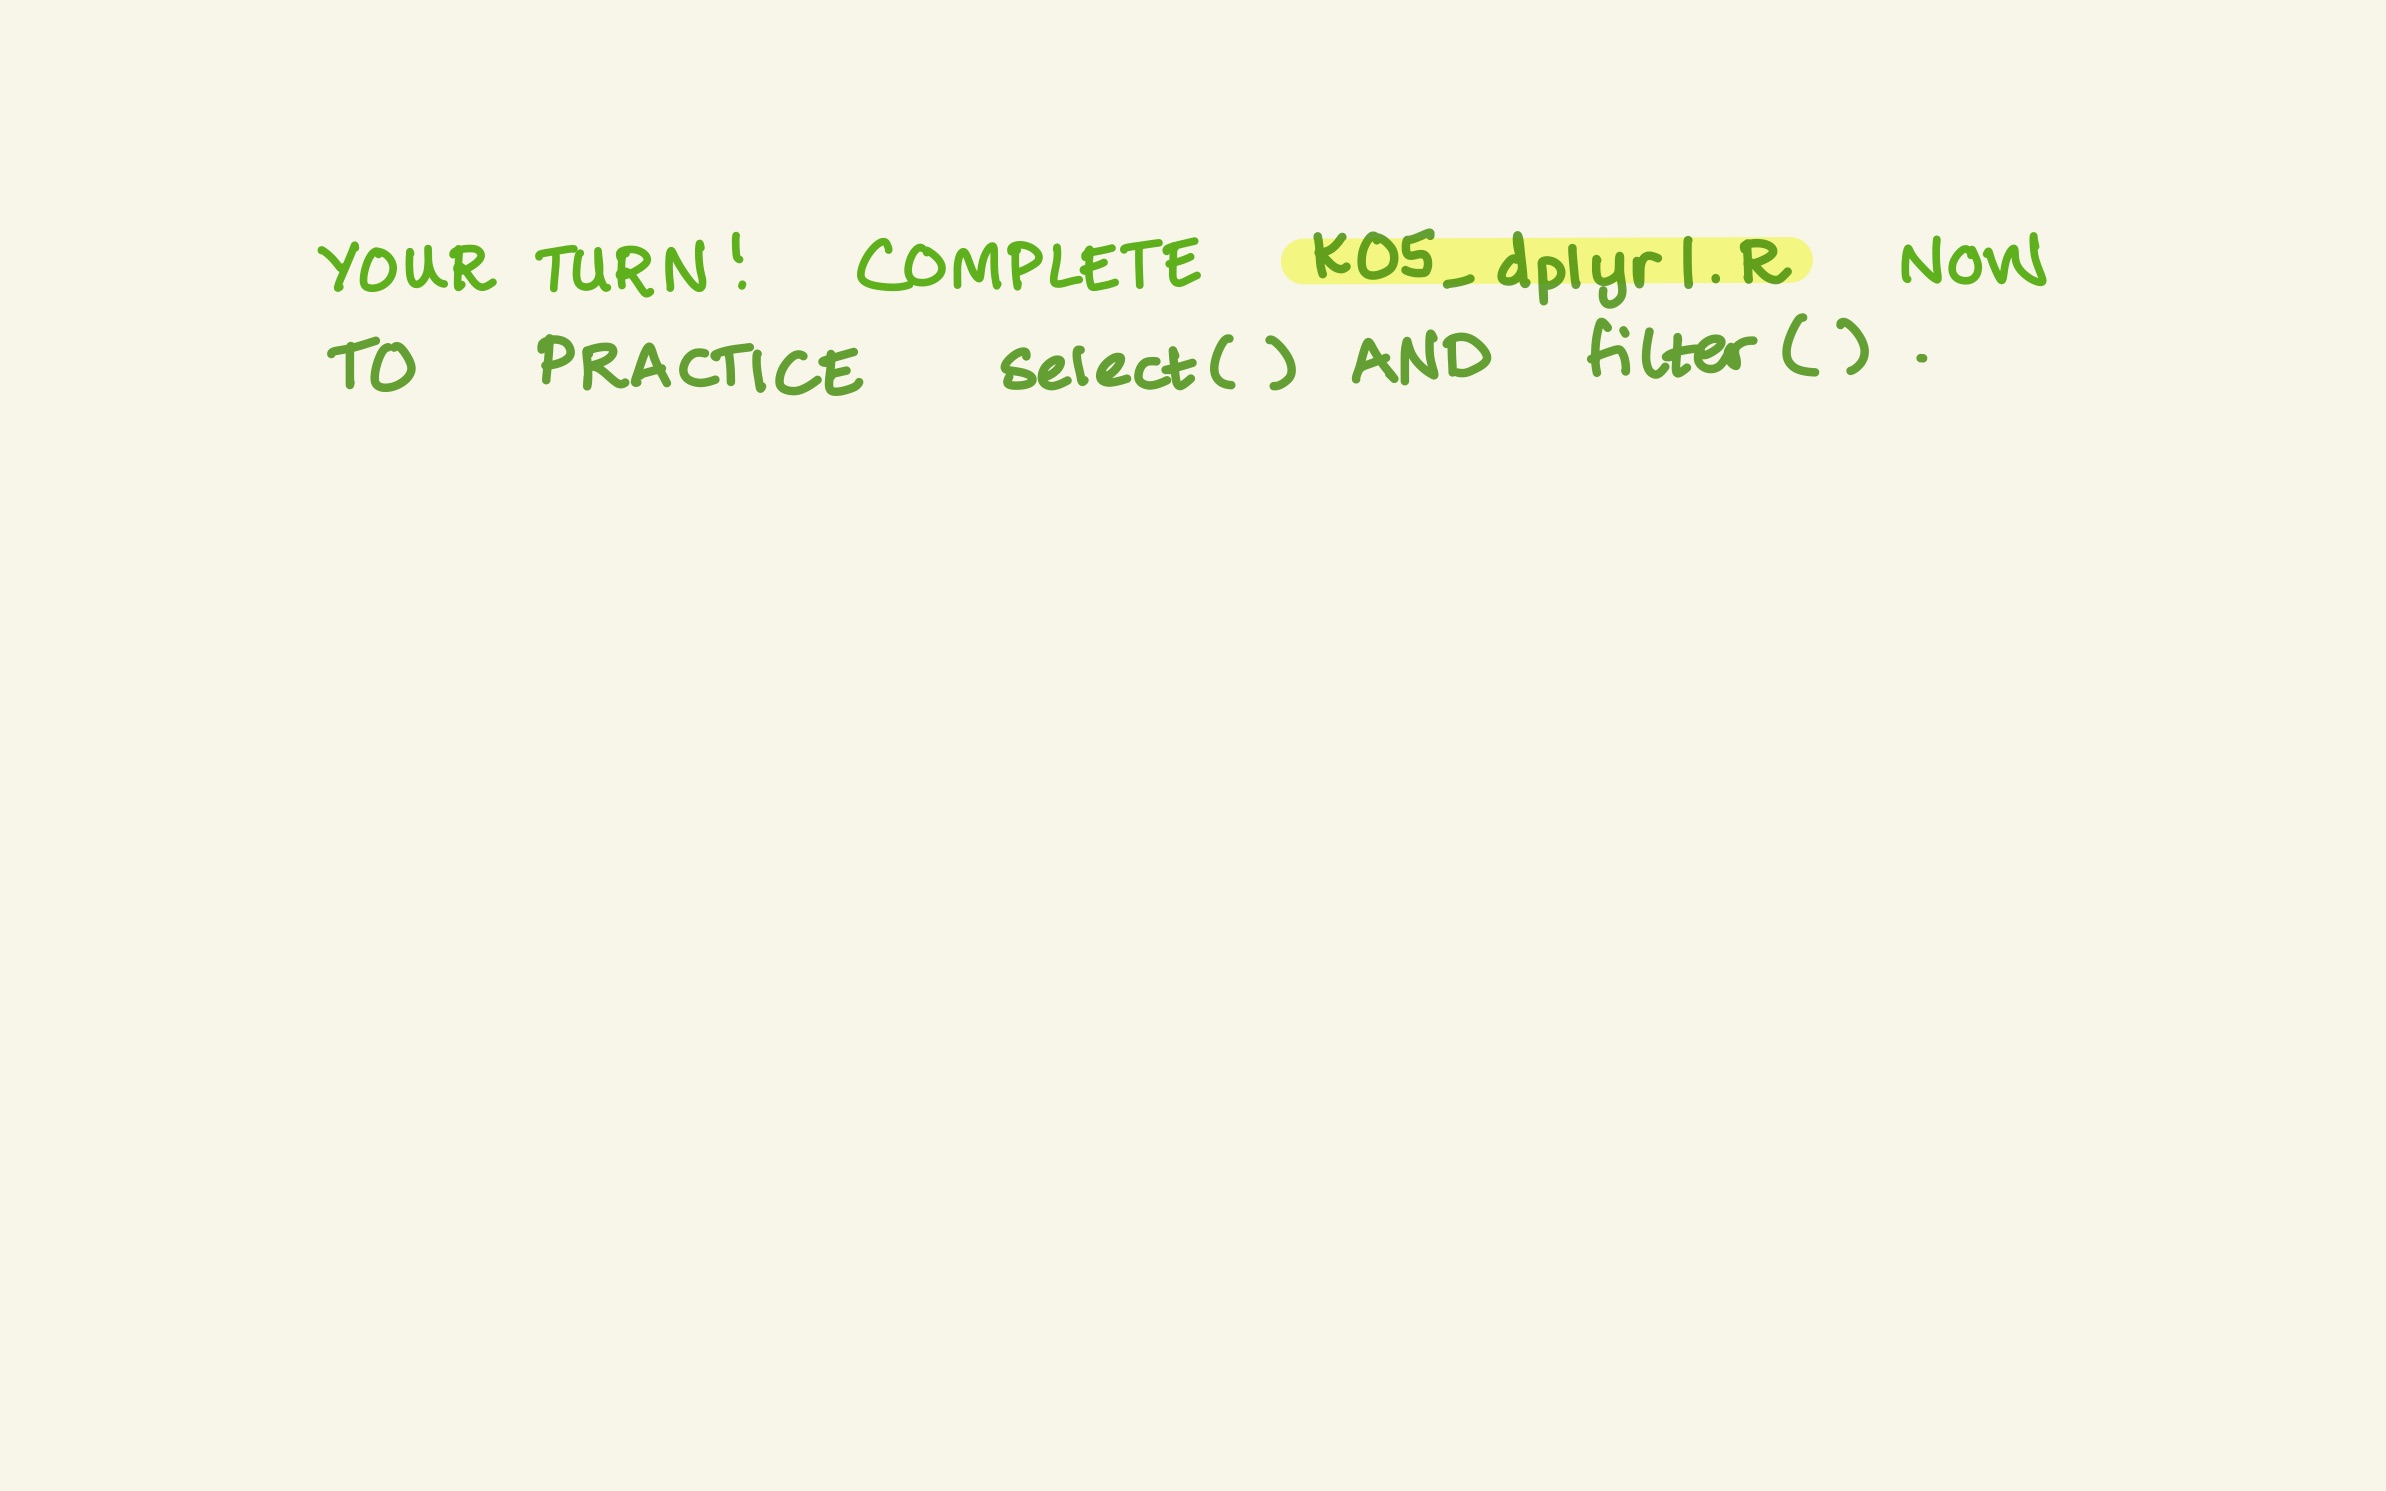 YOUR TURN! COMPLETE K05_dplyr1.R NOW
TO PRACTICE select() AND filter().